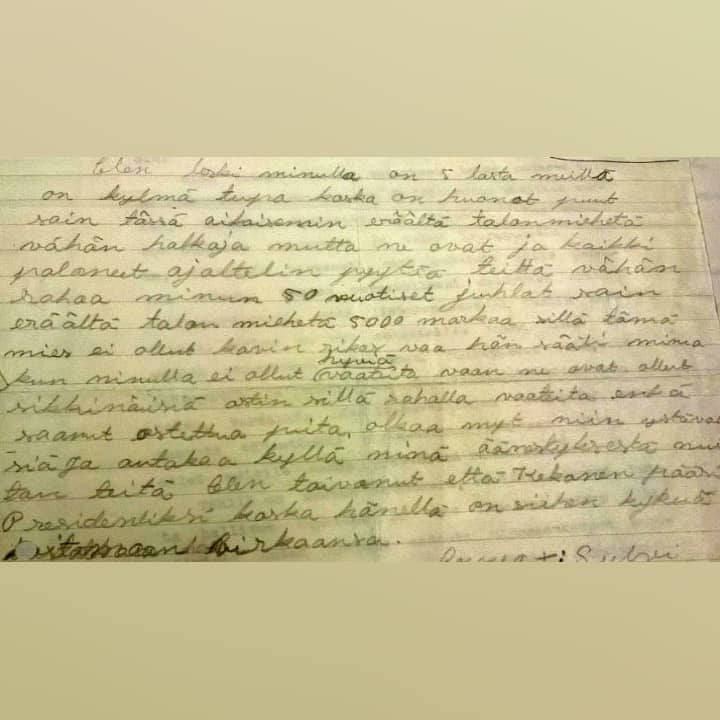 Olen leski minulla on 5 lasta meillä
on kylmä tupa koska on huonot puut
sain tässä aikaisemin eräältä talonmiehetä
vähän halkaja mutta ne ovat ja kaikki
palaneet ajaltelin pyytää teiltä vähän
rahaa minun 50 vuotiset juhlat sain
eräältä talon miehetä 5000 markaa sillä tämä
mies ei ollut kovin rikas vaa hän sääli minua
hyviä
kun minulla ei ollut vaateita vaan ne ovat ollut
sikkinäisiä ostin sillä rahalla vaateita enkä
saanut ostettua puita, olkaa nyt niin ystäväl
siä ja antakaa kyllä minä äänestyksestä muis
tan teitä Olen toivonut että Kekonen pääsi
Presidentiksi koska hänellä on siihen kykyä
hoitamaan Virkaansa.